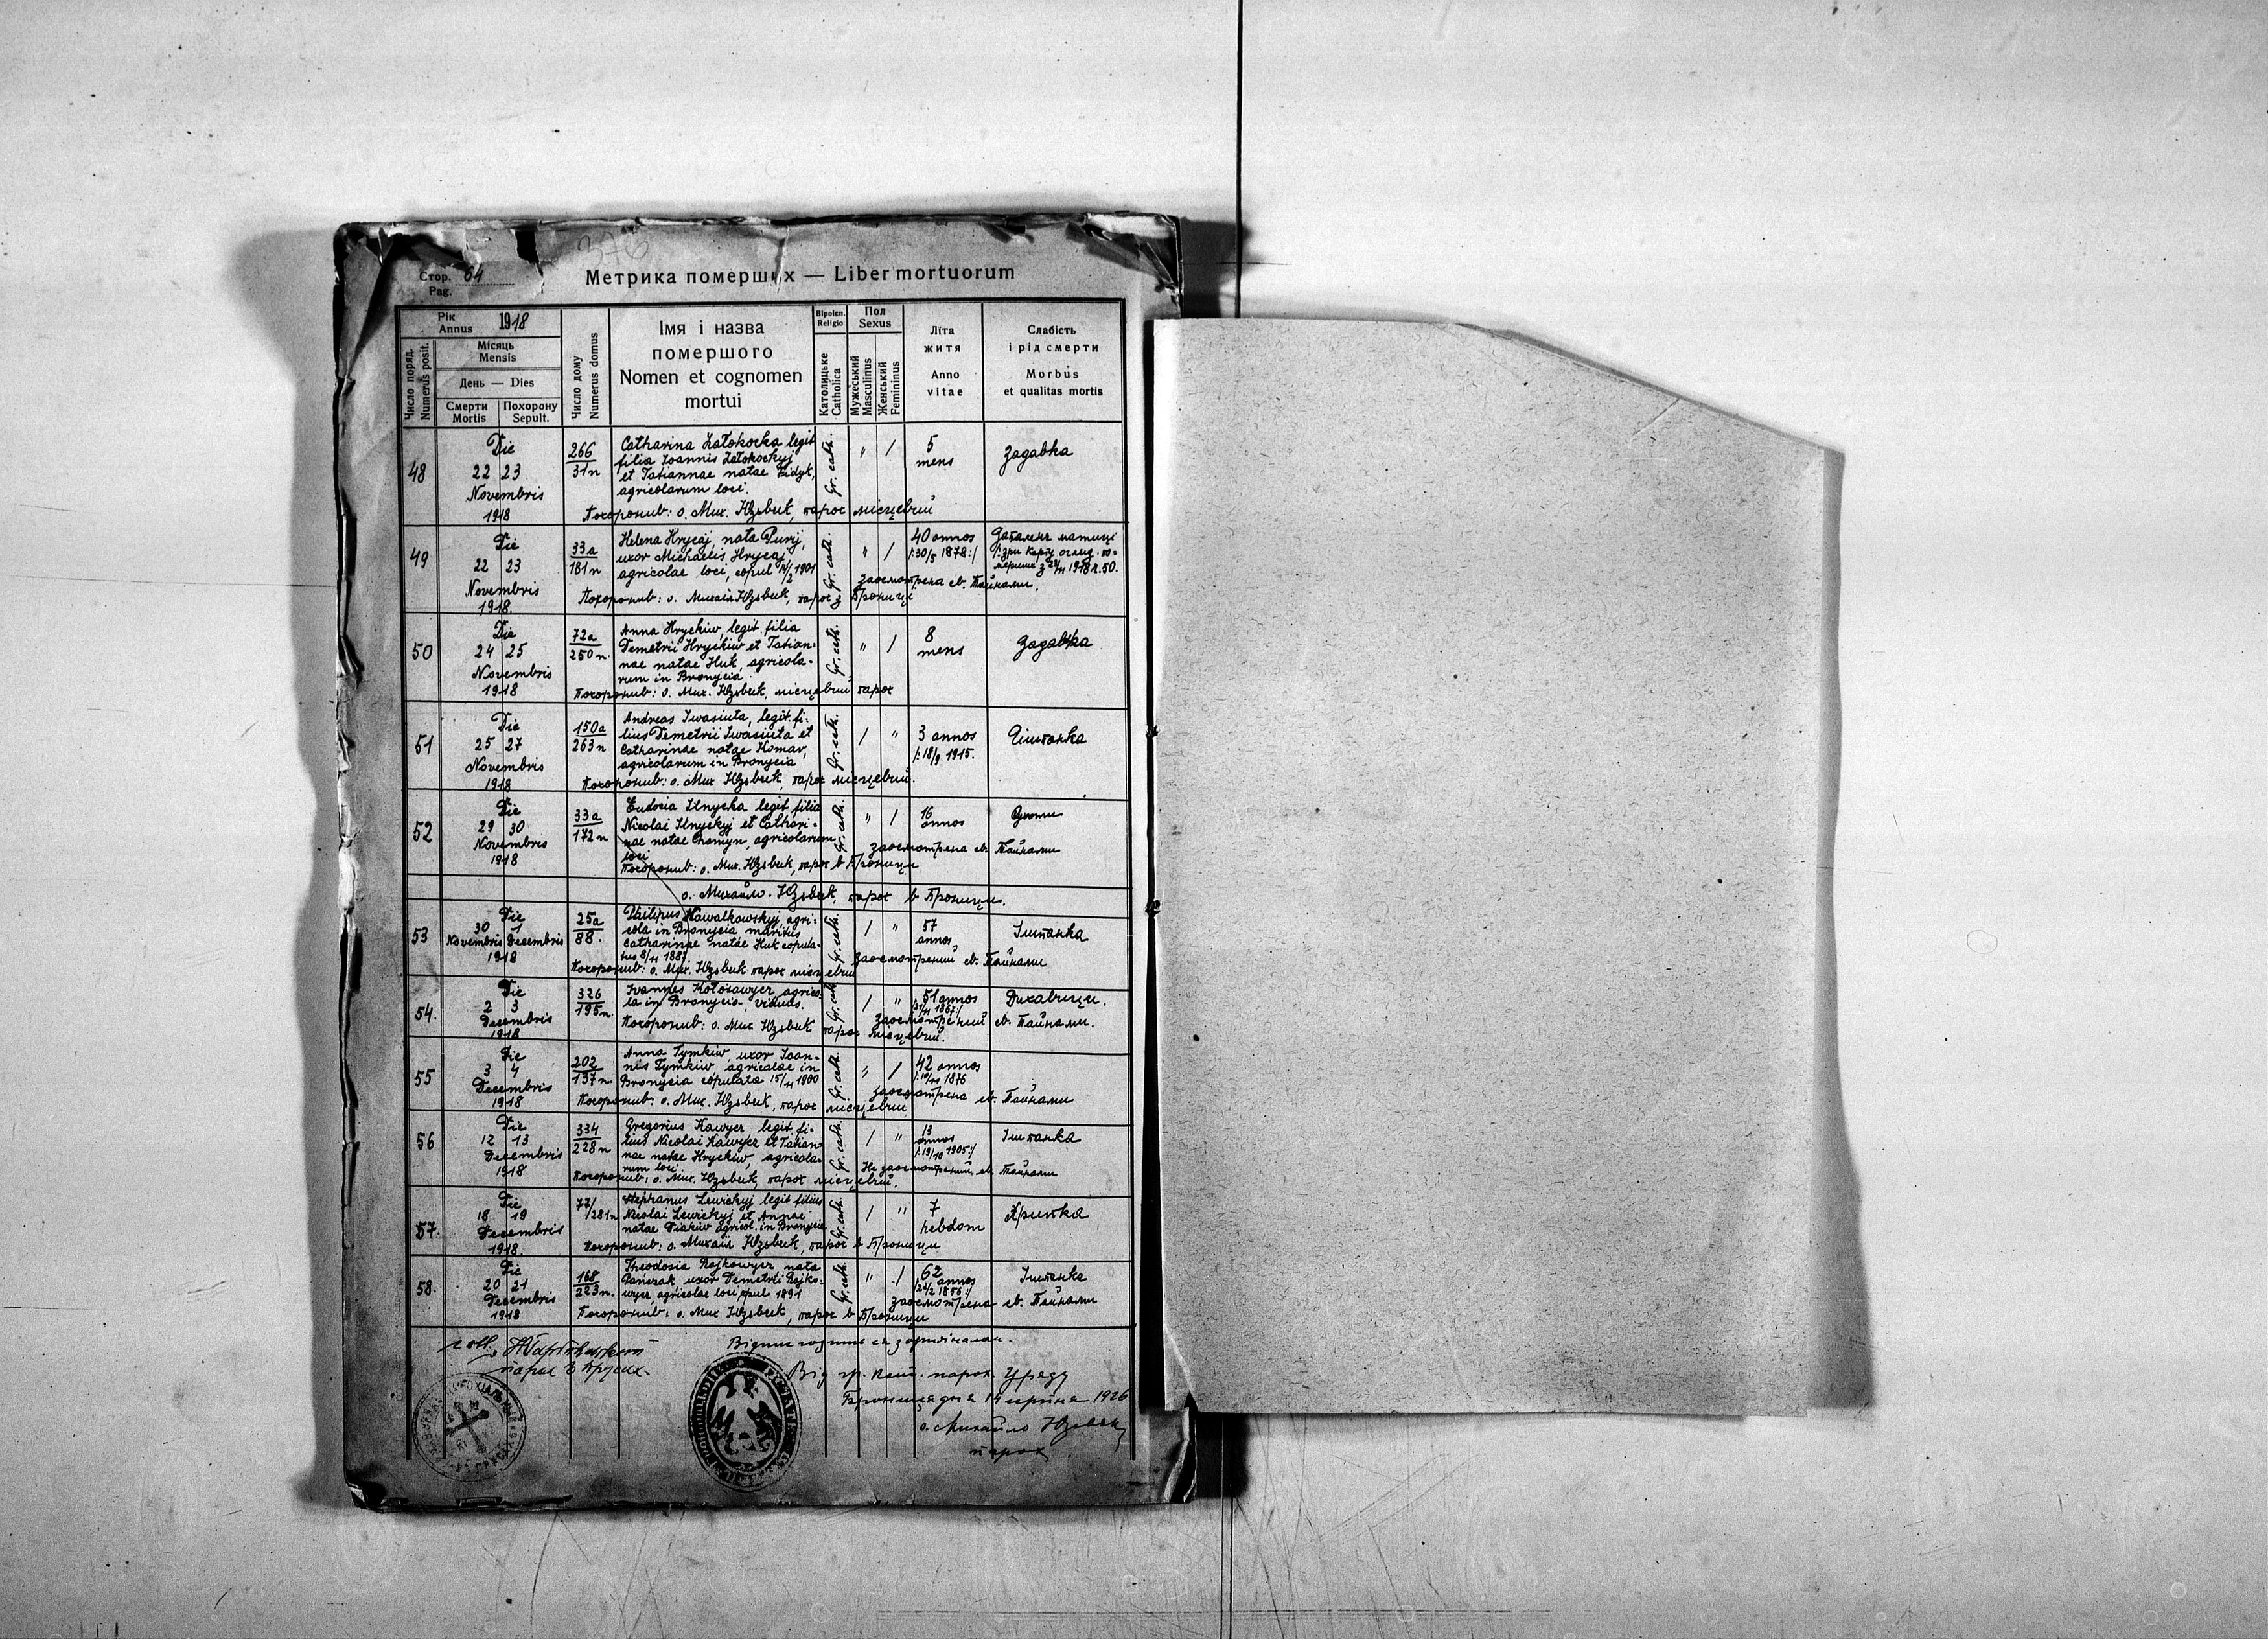 376
Стор. 64
Pag.
Метрика померших — Liber mortuorum
Рік
Annus 1918
Місяць
Mensis
День — Dies
Смерти Похорону
Mortis Sepult.
Число поряд.
Numerus posit.
Число дому
Numerus domus
Імя і назва
помершого
Nomen et cognomen
mortui
Віроісп.
Religio
Католицьке
Catholica
Пол
Sexus
Мужеський
Masculinus
Женський
Femininus
Літа
житя
Anno
vitae
Слабість
і рід смерти
Morbus
et qualitas mortis
48
Die
22 23
Novembris
1918
266
31n
Catharina Zatokocka legit
filia Joannis Zatokockyj
et Tatiannae natae Fidyk,
agricolarum loci.
Gr. cath.
" /
5
mens
Задавка
Похоронив: о. Мих. Юзьвик, парох місцевий
49
Die
22 23
Novembris
1918.
33a
181n
Helena Hrycaj, nata Purij,
uxor Michaelis Hrycaj
agricolae loci, copul /2 1901
Gr. cath.
" /
40 annos
/:30/5 1878:/
1918 ч. 50.
Заосмотрена св. Тайнами.
Похоронив: о. Михаіл Юзьвик, парох в Броници
50
Die
24 25
Novembris
1918
72a
250n.
Anna Hryckiw, legit. filia
Demetrii Hryckiw et Tatian-
nae natae Huk, agricola-
rum in Bronycia
Gr. cath.
" /
8
mens
Задавка
Похоронив: о. Мих. Юзьвик, місцевий парох
51
Die
25 27
Novembris
1918
150a
263n
Andreas Iwasiuta, legit. fi-
lius Demetrii Iwasiuta et
Catharinae natae Komar,
agricolarum in Bronycia
Gr. cath.
/ "
3 annos
/:18/9 1915.
Гішпанка
Похоронив: о. Мих Юзьвик, парох місцевий.
52
Die
29 30
Novembris
1918
33a
172n
Eudocia Ilnycka legit filia
Nicolai Ilnyckyj et Cathari-
nae natae Chomyn, agricolarum
loci
Gr. cath.
" /
16
annos
заосмотрена св. Тайнами
Похоронив: о. Мих. Юзьвик, парох в Броници
о. Михайло Юзьвик, парох в Броници.
53
Die
30 1
Novembris Decembris
1918
25a
88.
Philipus Kowalkowskyj agri-
cola in Bronycia maritus
Catharinae natae Huk copula-
tus 8/11 1887
Gr. cath.
/ "
57
annos
Ішпанка
Заосмотрений св. Тайнами
Похоронив: о. Мих. Юзьвик парох місцевий
54.
Die
2 3
Decembris
1918
326
195n.
Ivannes Kotosowyer agrico-
la in Bronycia, viduus.
Gr. cath
/ "
51 annos
/11 1867:/
Дихавици.
Заосмотрений св. Тайнами.
Похоронив: о. Мих Юзьвик парох місцевий.
55
Die
3 4
Decembris
1918
202
137n
Anna Tymkiw, uxor Joan-
nis Tymkiw, agricolae in
Bronycia copulata 15/11 1900
Gr. cath.
" /
42 annos
1876
заосмотрена св. Тайнами
Похоронив: о. Мих. Юзьвик, парох місцевий
56
Die
12 13
Decembris
1918
334
228n
Gregorius Kawyer legit. fi-
lius Nicolai Kawyer et Tatian-
nae natae Hryckiw, agricola-
rum loci.
Gr. cath.
/ "
13
annos
/:19/10 1905:/
Ішпанка
Не заосмотрений св. Тайнами
Похоронив: о. Мих. Юзьвик, парох місцевий.
57.
Die
18 19
Decembris
1918.
77/
281n
Stephanus Lewickyj legit filius
Nicolai Lewickyj et Annae
natae Diakiw agricol. in Bronycia
Gr. cath.
/ "
7
hebdom
Хрипка
Похоронив: о. Михаіл Юзьвик, парох в Броници
58.
Die
20 21
Decembris
1918
168
223n.
Theodosia Rajkowyer nata
Panczak, uxor Demetrii Rajko-
wyer, agricolae loci copul 1891
Gr. cath.
" /
62
annos
/2 1856:/
Ішпанка
заосмотрена св. Тайнами
Похоронив: о. Мих Юзьвик, парох в Броници
Від гр. кат. парох. Уряду
1926
о. Михайло Юзьвик
парох